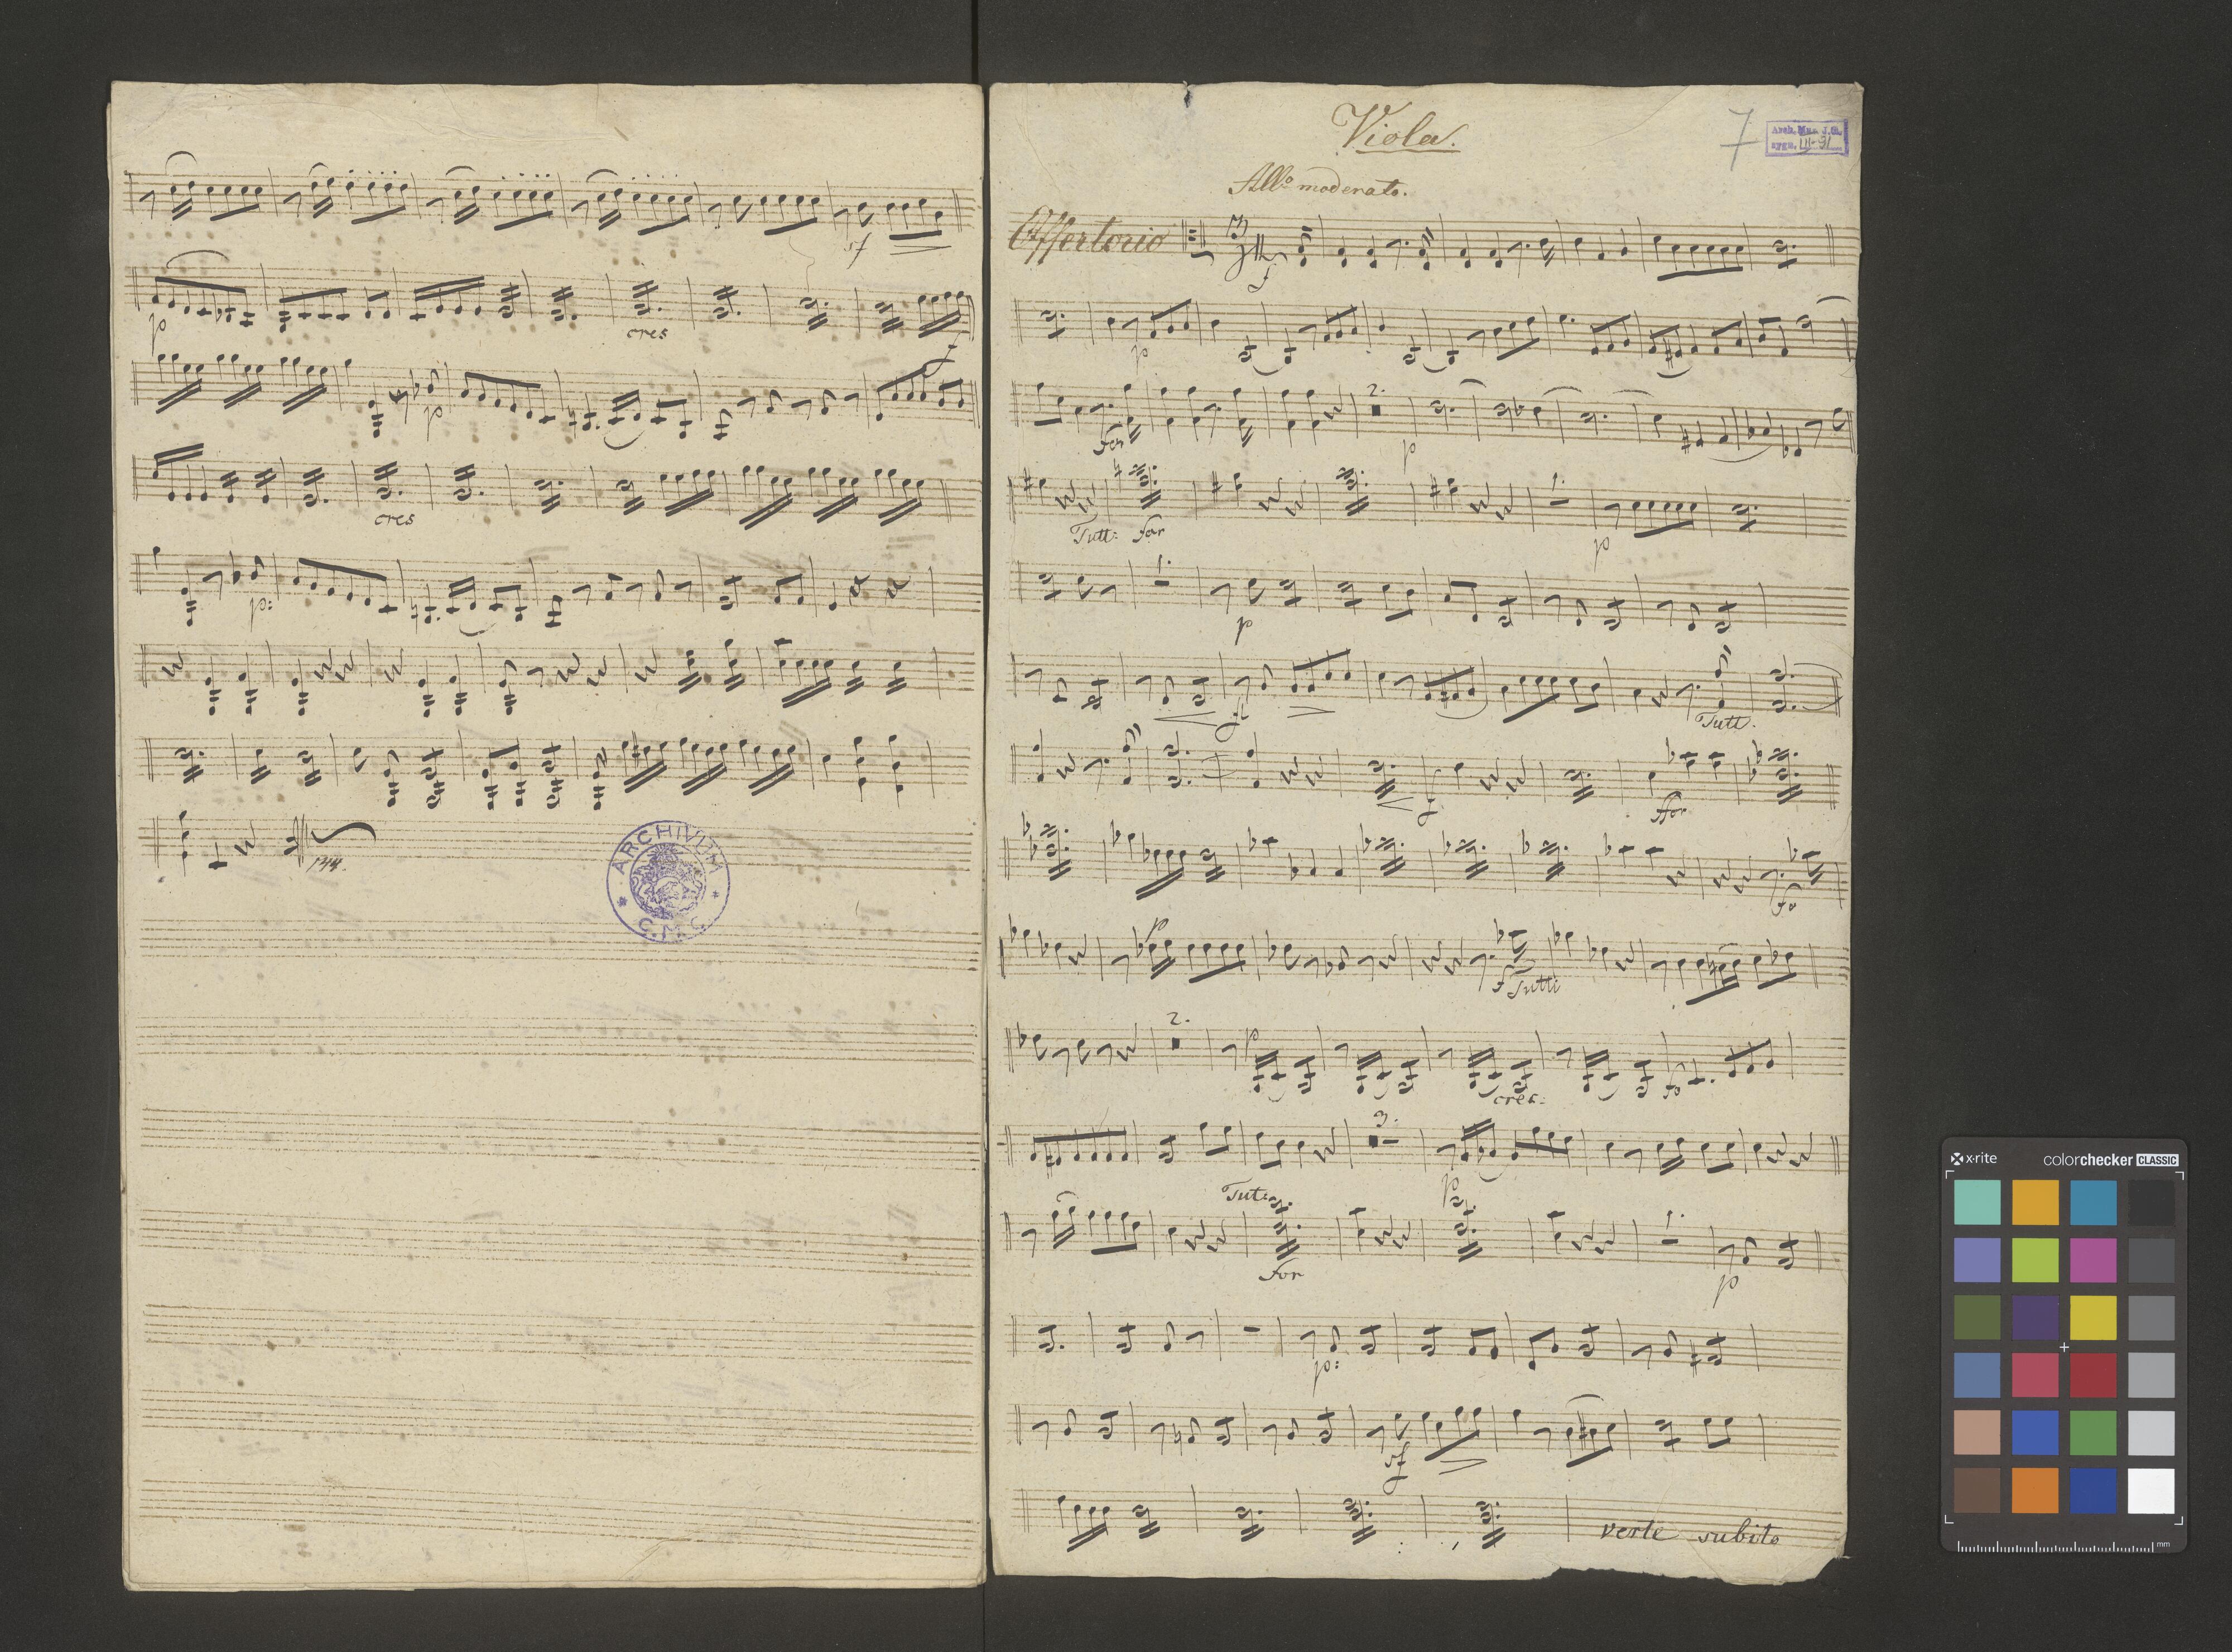 sf
p
cres
f
p
cres
p:
ARCHIVUM
C.M.C.
Viola.
7
Arch. Mus. J.G.
sygn. III-91
All.o moderato.
Offertorio
f
p
for
2.
p
Tutt: for
1.
p
1.
p
Tutt.
f
ffor
fo
p
f Tutti
2.
p
cres:
fo
3.
p
Tutt:
For
1.
p
p:
sf
verte subito
x-rite
colorchecker CLASSIC
mm